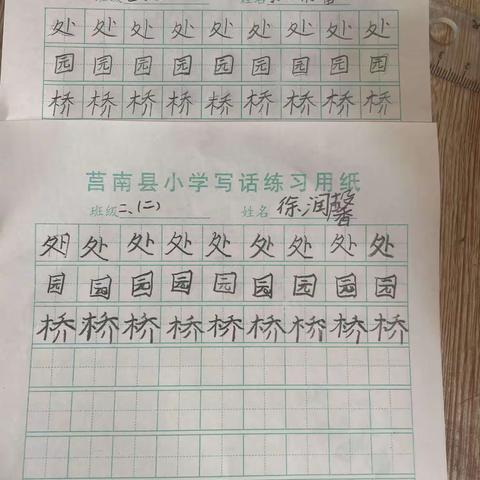 班级
姓名
处处处处处处处处处
园园园园园园园园园
桥桥桥桥桥桥桥桥桥
莒南县小学写话练习用纸
班级二、(二) 姓名徐润馨
处处处处处处处处处
园园园园园园园园园
桥桥桥桥桥桥桥桥桥